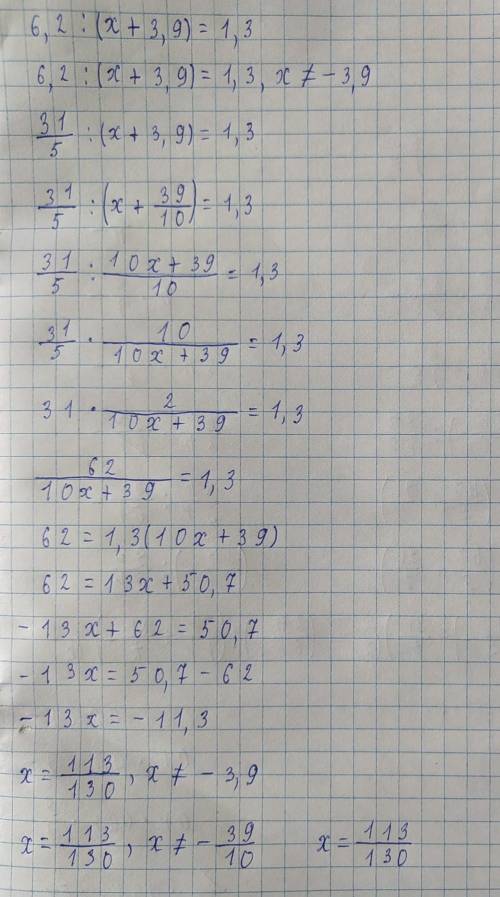 6,2 : (x + 3,9) = 1,3
6,2 : (x + 3,9) = 1,3, x ≠ -3,9
31/5 : (x + 3,9) = 1,3
31/5 : (x + 39/10) = 1,3
31/5 : (10x + 39)/10 = 1,3
31/5 · 10/(10x + 39) = 1,3
31 · 2/(10x + 39) = 1,3
62/(10x + 39) = 1,3
62 = 1,3(10x + 39)
62 = 13x + 50,7
-13x + 62 = 50,7
-13x = 50,7 - 62
-13x = -11,3
x = 113/130, x ≠ -3,9
x = 113/130, x ≠ -39/10 x = 113/130